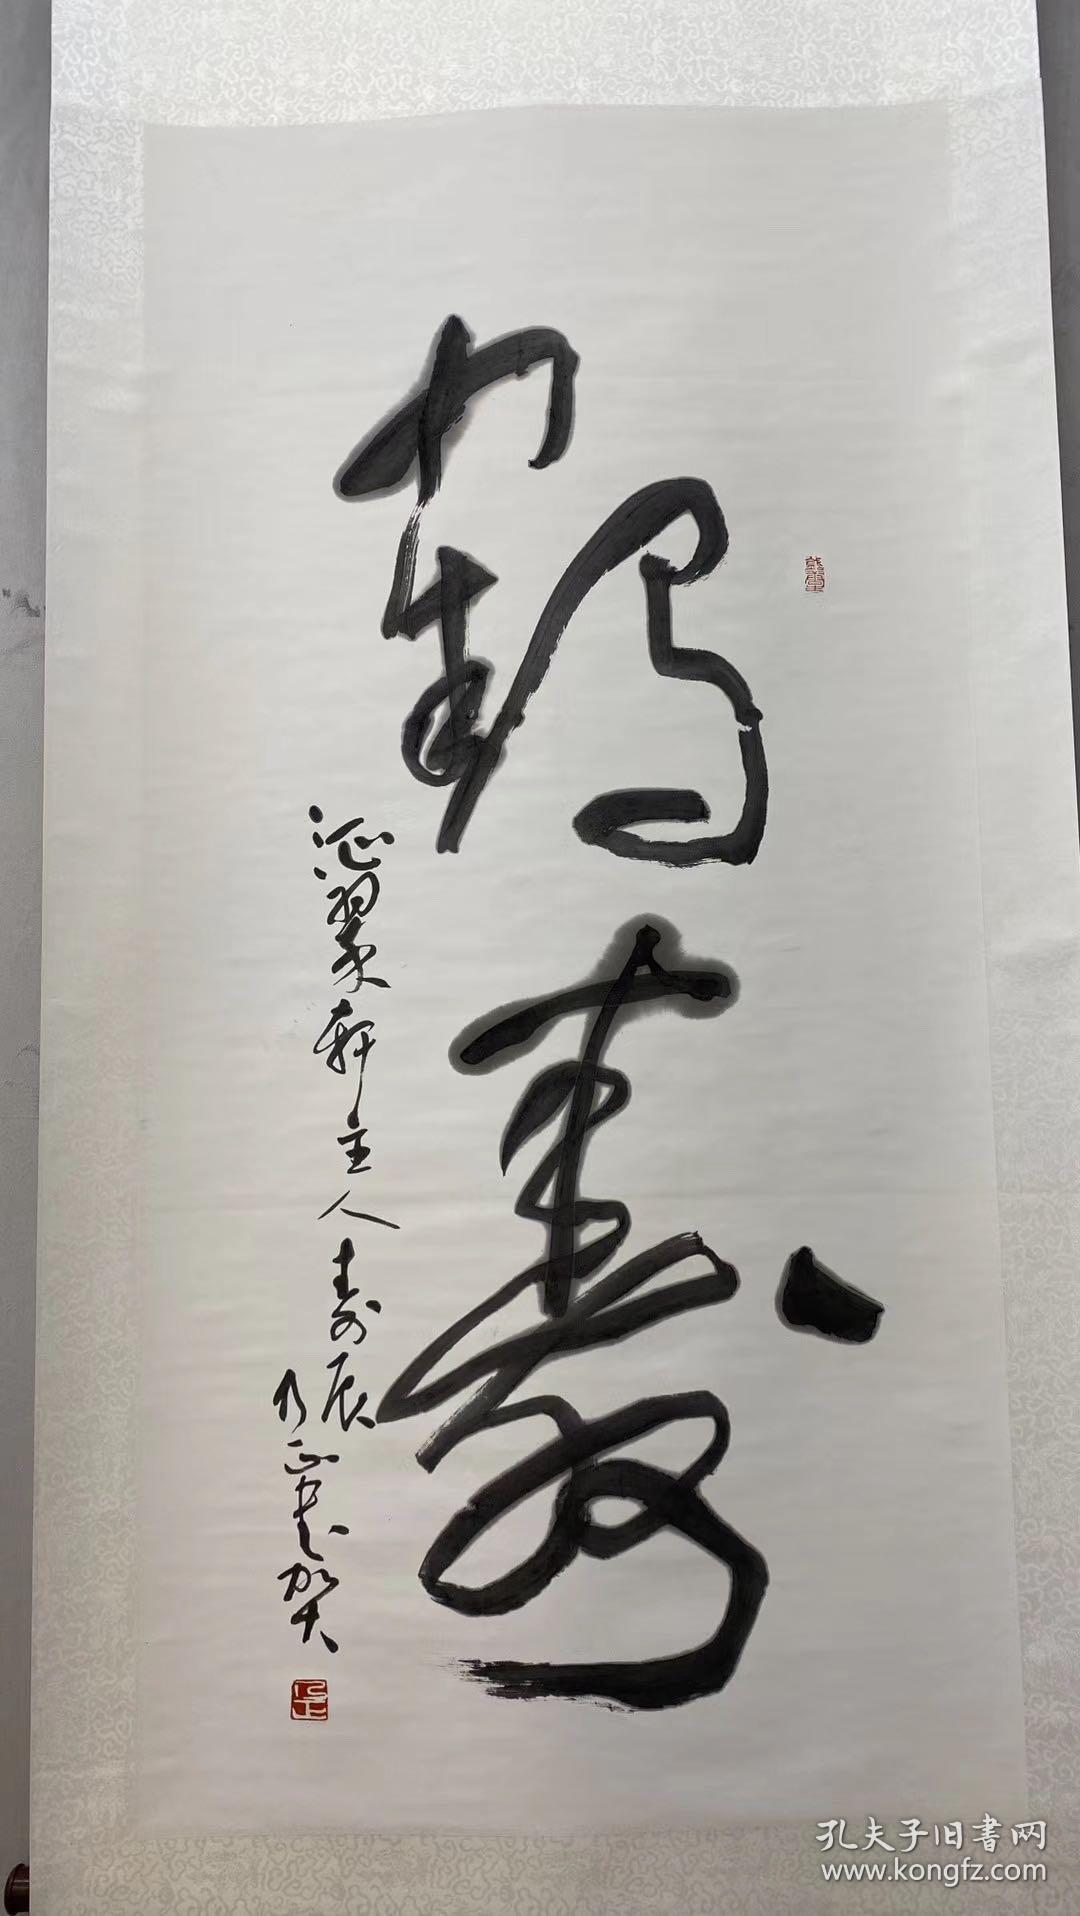 鹤寿
沁翠轩主人寿辰
乃正书贺
孔夫子旧書网
www.kongfz.com